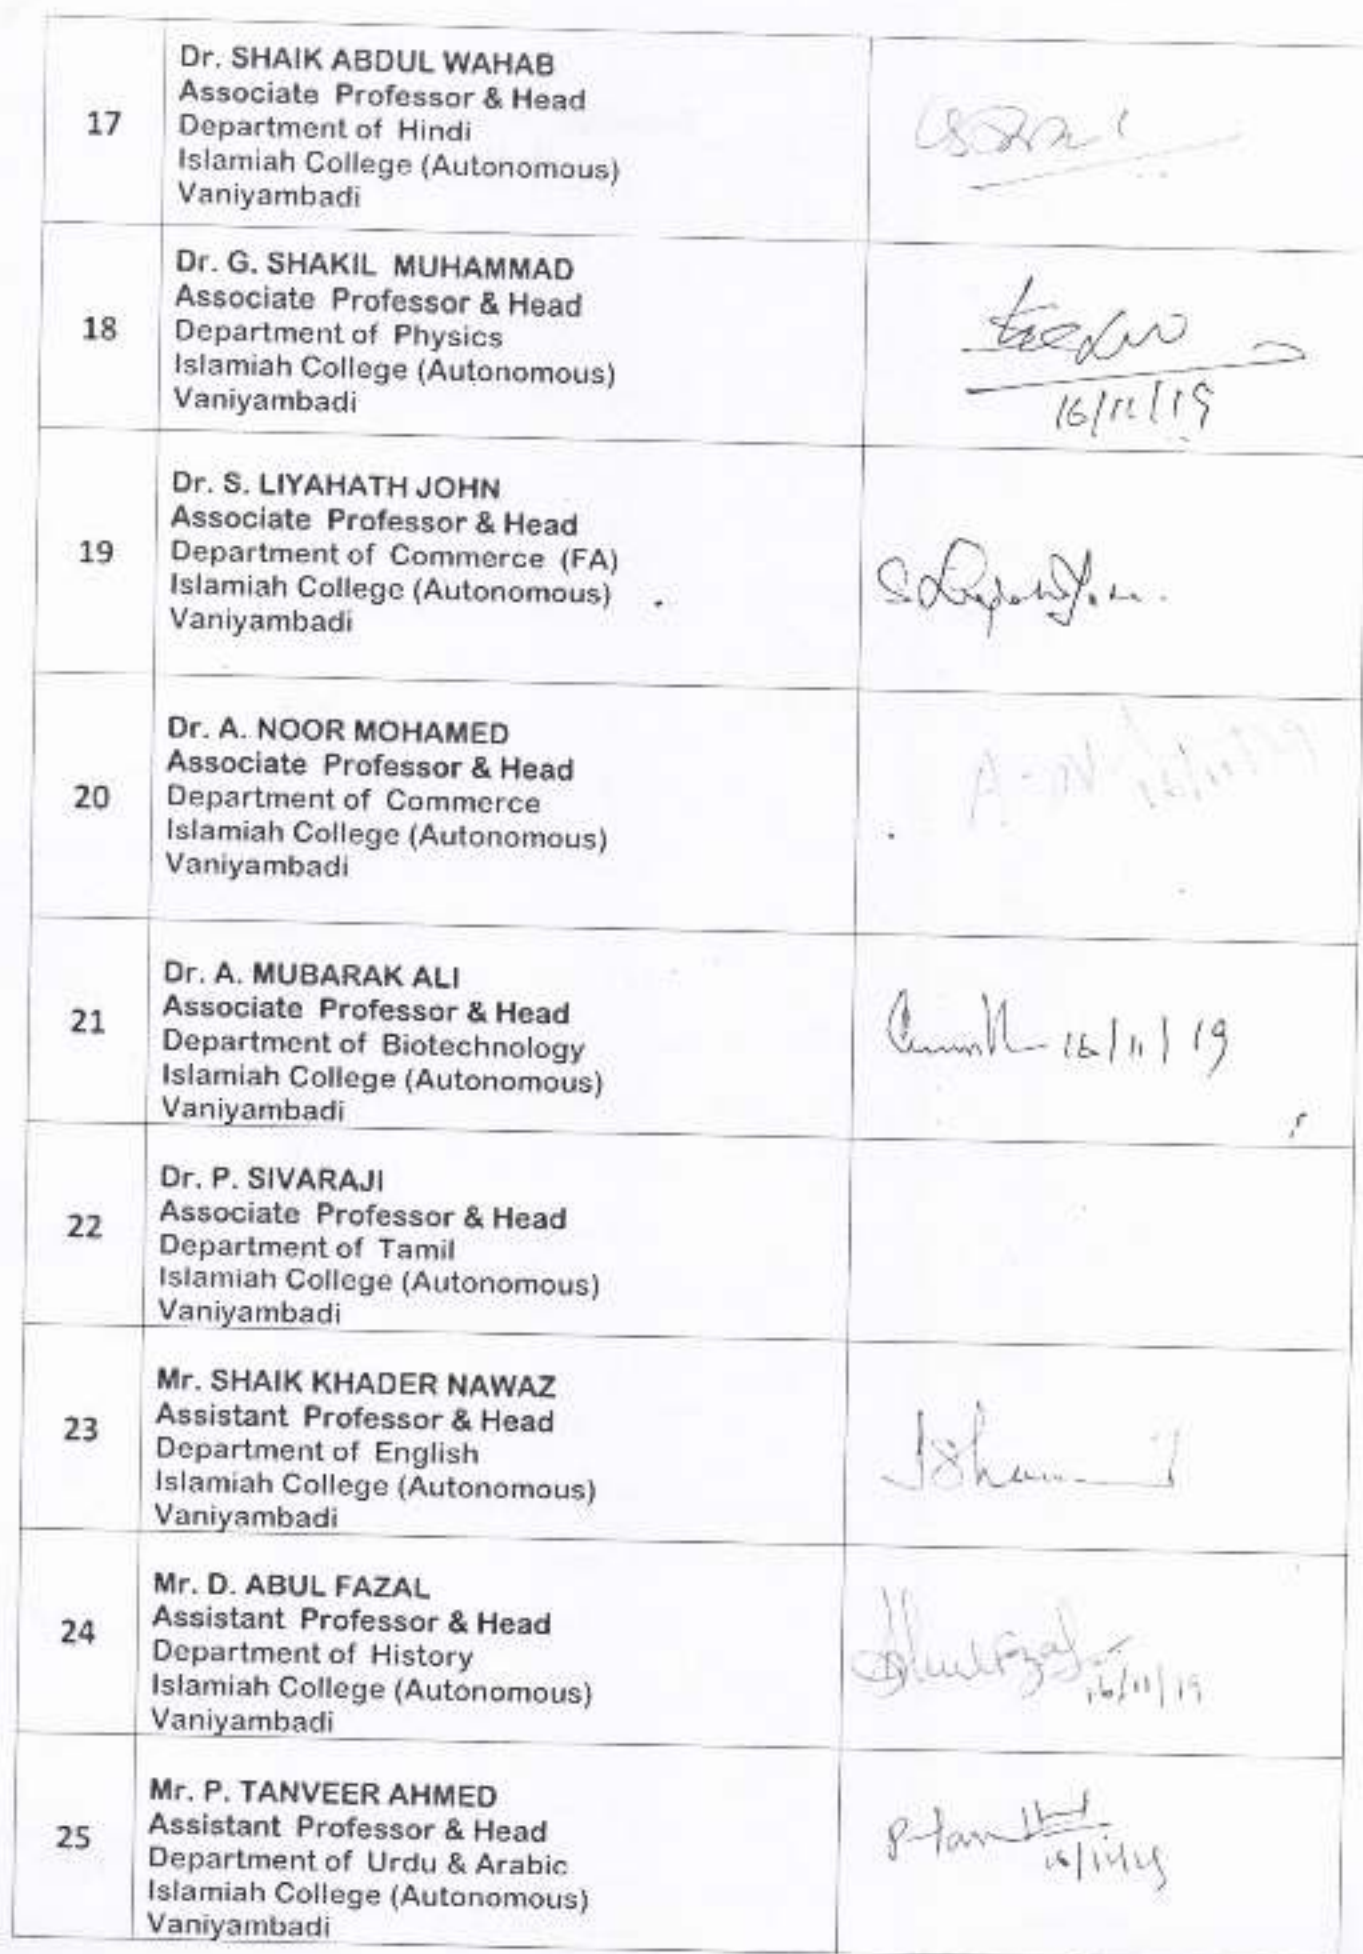 17
Dr. SHAIK ABDUL WAHAB
Associate Professor & Head
Department of Hindi
Islamiah College (Autonomous)
Vaniyambadi
18
Dr. G. SHAKIL MUHAMMAD
Associate Professor & Head
Department of Physics
Islamiah College (Autonomous)
Vaniyambadi
16/11/19
19
Dr. S. LIYAHATH JOHN
Associate Professor & Head
Department of Commerce (FA)
Islamiah College (Autonomous)
Vaniyambadi
20
Dr. A. NOOR MOHAMED
Associate Professor & Head
Department of Commerce
Islamiah College (Autonomous)
Vaniyambadi
21
Dr. A. MUBARAK ALI
Associate Professor & Head
Department of Biotechnology
Islamiah College (Autonomous)
Vaniyambadi
16/11/19
22
Dr. P. SIVARAJI
Associate Professor & Head
Department of Tamil
Islamiah College (Autonomous)
Vaniyambadi
23
Mr. SHAIK KHADER NAWAZ
Assistant Professor & Head
Department of English
Islamiah College (Autonomous)
Vaniyambadi
24
Mr. D. ABUL FAZAL
Assistant Professor & Head
Department of History
Islamiah College (Autonomous)
Vaniyambadi
16/11/19
25
Mr. P. TANVEER AHMED
Assistant Professor & Head
Department of Urdu & Arabic
Islamiah College (Autonomous)
Vaniyambadi
16/11/19